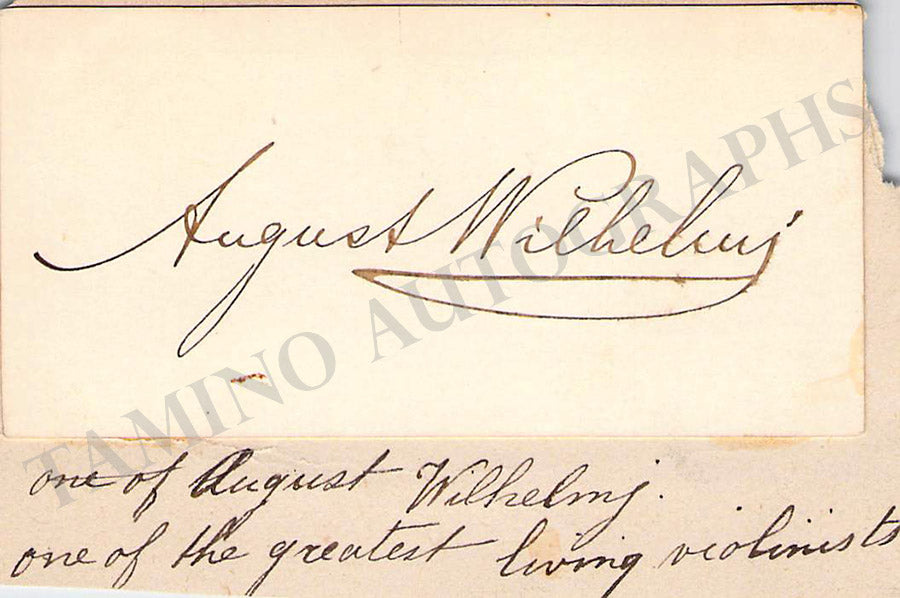 August Wilhelmj
TAMINO AUTOGRAPHS
one of August Wilhelmj.
one of the greatest living violinists